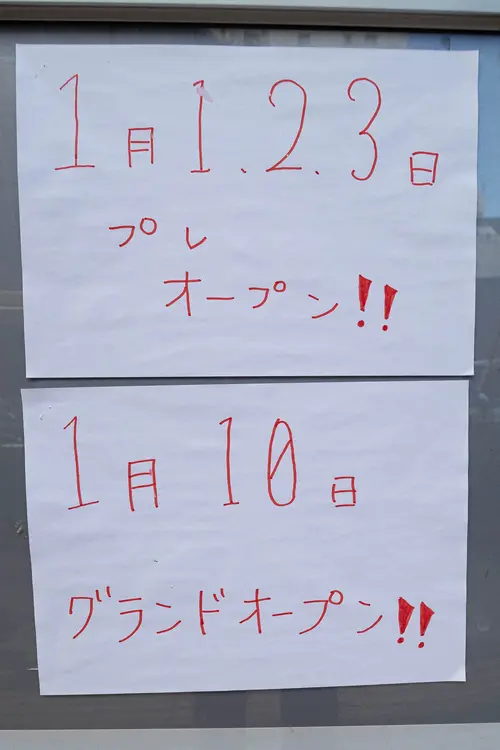 1月1.2.3日
プレ
オープン!!
1月10日
グランドオープン!!